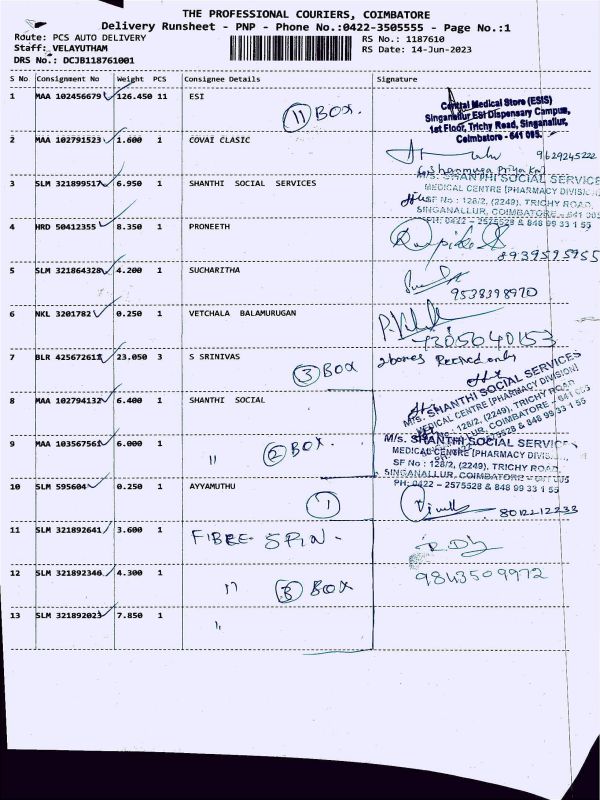 THE PROFESSIONAL COURIERS, COIMBATORE
Delivery Runsheet - PNP - Phone No.:0422-3505555 - Page No.:1
Route: PCS AUTO DELIVERY
RS No.: 1187610
Staff: VELAYUTHAM
RS Date: 14-Jun-2023
DRS No.: DCJB118761001
S No Consignment No Weight PCS Consignee Details Signature
1 MAA 102456679 126.450 11 ESI
11 BOX.
Central Medical Store (ESIS)
Singanallur ESI Dispensary Campus,
1st Floor, Trichy Road, Singanallur,
Coimbatore - 641 005.
2 MAA 102791523 1.600 1 COVAI CLASIC
9629245222
3 SLM 321899517 6.950 1 SHANTHI SOCIAL SERVICES
M/s. SHANTHI SOCIAL SERVICE
MEDICAL CENTRE [PHARMACY DIVISI
SF No : 128/2, (2249), TRICHY ROAD,
SINGANALLUR, COIMBATORE - 641 005
PH: 0422 - 2575528 & 848 99 33 1 55
4 HRD 50412355 8.350 1 PRONEETH
8939595955
5 SLM 321864328 4.200 1 SUCHARITHA
9538398970
6 NKL 3201782 0.250 1 VETCHALA BALAMURUGAN
7305640153
7 BLR 425672611 23.050 3 S SRINIVAS
3 BOX
2 boxes Recived only
8 MAA 102794132 6.400 1 SHANTHI SOCIAL
M/s. SHANTHI SOCIAL SERVICES
MEDICAL CENTRE [PHARMACY DIVISION]
: 128/2, (2249), TRICHY ROAD
LUR, COIMBATORE - 641 005
2575528 & 848 99 33 1 55
9 MAA 103567561 6.000 1 "
2 BOX.
M/s. SHANTHI SOCIAL SERVICE
MEDICAL CENTRE [PHARMACY DIVIS
SF No : 128/2, (2249), TRICHY ROAD,
SINGANALLUR, COIMBATORE - 641 005
PH: 0422 - 2575528 & 848 99 33 1 55
10 SLM 595604 0.250 1 AYYAMUTHU
1
8012212233
11 SLM 321892641 3.600 1 FIBRE SPIN -
12 SLM 321892346 4.300 1 "
3 BOX
9843509972
13 SLM 321892023 7.850 1 "